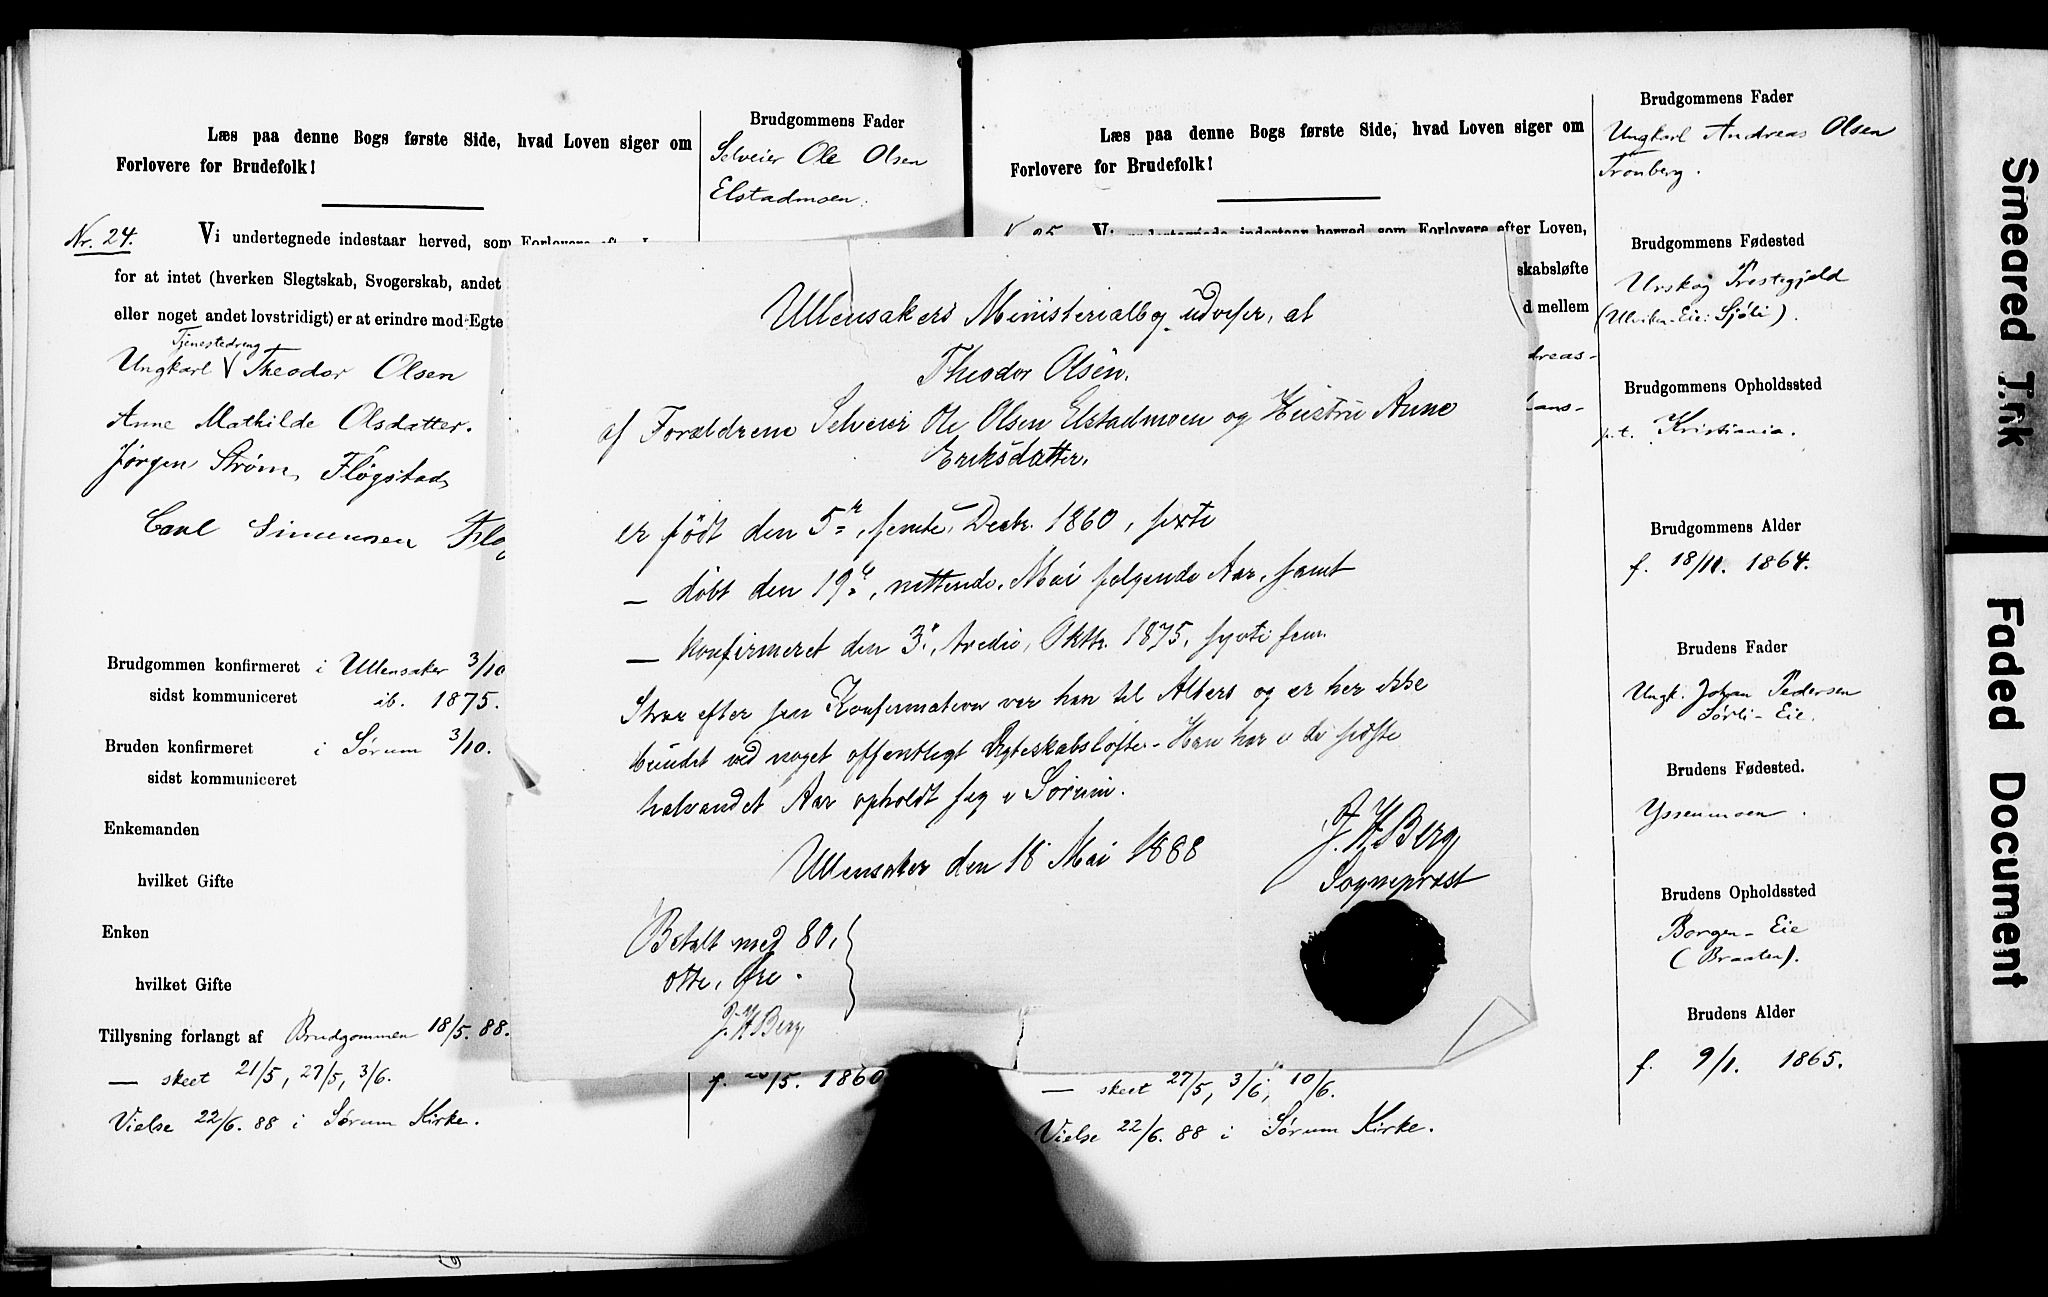 Læs paa denne Bogs første Side, hvad Loven siger om
Forlovere for Brudefolk!
Nr. 24.
Vi undertegnede indestaar herved, som Forlovere efter
for at intet (hverken Slegtskab, Svogerskab, andet
eller noget andet lovstridigt) er at erindre mod Egte
Tjenestedreng
Ungkarl V Theodor Olsen
Anne Mathilde Olsdatter.
Jørgen Strøm, Fløgstad,
Carl Simensen Fløg
Brudgommen konfirmeret i Ullensaker 3/10
sidst kommuniceret ib. 1875.
Bruden konfirmeret i Sørum 3/10.
sidst kommuniceret
Enkemanden
hvilket Gifte
Enken
hvilket Gifte
Tillysning forlangt af Brudgommen 18/5. 88.
— skeet 21/5, 27/5, 3/6.
Vielse 22/6. 88 i Sørum Kirke.
Brudgommens Fader
Selveier Ole Olsen
Elstadmoen.
Ullensakers Ministerialbog udviser, at
Theodor Olsen,
af Forældrene Selveier Ole Olsen Elstadmoen og Hustru Anne
Eriksdatter,
er født den 5te, femte, Decbr. 1860, sexti
— døbt den 19de, nittende, Mai følgende Aar, samt
— konfirmeret den 3die, tredie, Oktbr. 1875, sytti fem.
Strax efter sin Konfirmation var han til Alters og er her ikke
bundet ved noget offentligt Ægteskabsløfte. Han har i de sidste
halvandet Aar opholdt sig i Sørum.
Ullensaker den 18 Mai 1888
J. H Berg
Sogneprest
Betalt med 80,
otte, Øre.
J. H Berg
f. /5. 1860
Læs paa denne Bogs første Side, hvad Loven siger om
Forlovere for Brudefolk!
Vi undertegnede indestaar herved, som Forlovere efter Loven,
skabsløfte
d mellem
dreas-
ans-
— skeet 27/5, 3/6, 10/6.
Vielse 22/6. 88 i Sørum Kirke.
Brudgommens Fader
Ungkarl Andreas Olsen
Tronberg.
Brudgommens Fødested
Urskog Prestegjeld
Brudgommens Opholdssted
p.t. Kristiania.
Brudgommens Alder
f. 18/11. 1864.
Brudens Fader
Ungk. Johan Pedersen
Sørli-Eie.
Brudens Fødested.
Yssenmoen.
Brudens Opholdssted
Borgen-Eie
(Braaten).
Brudens Alder
f. 9/1. 1865.
Smeared Ink
Faded Document